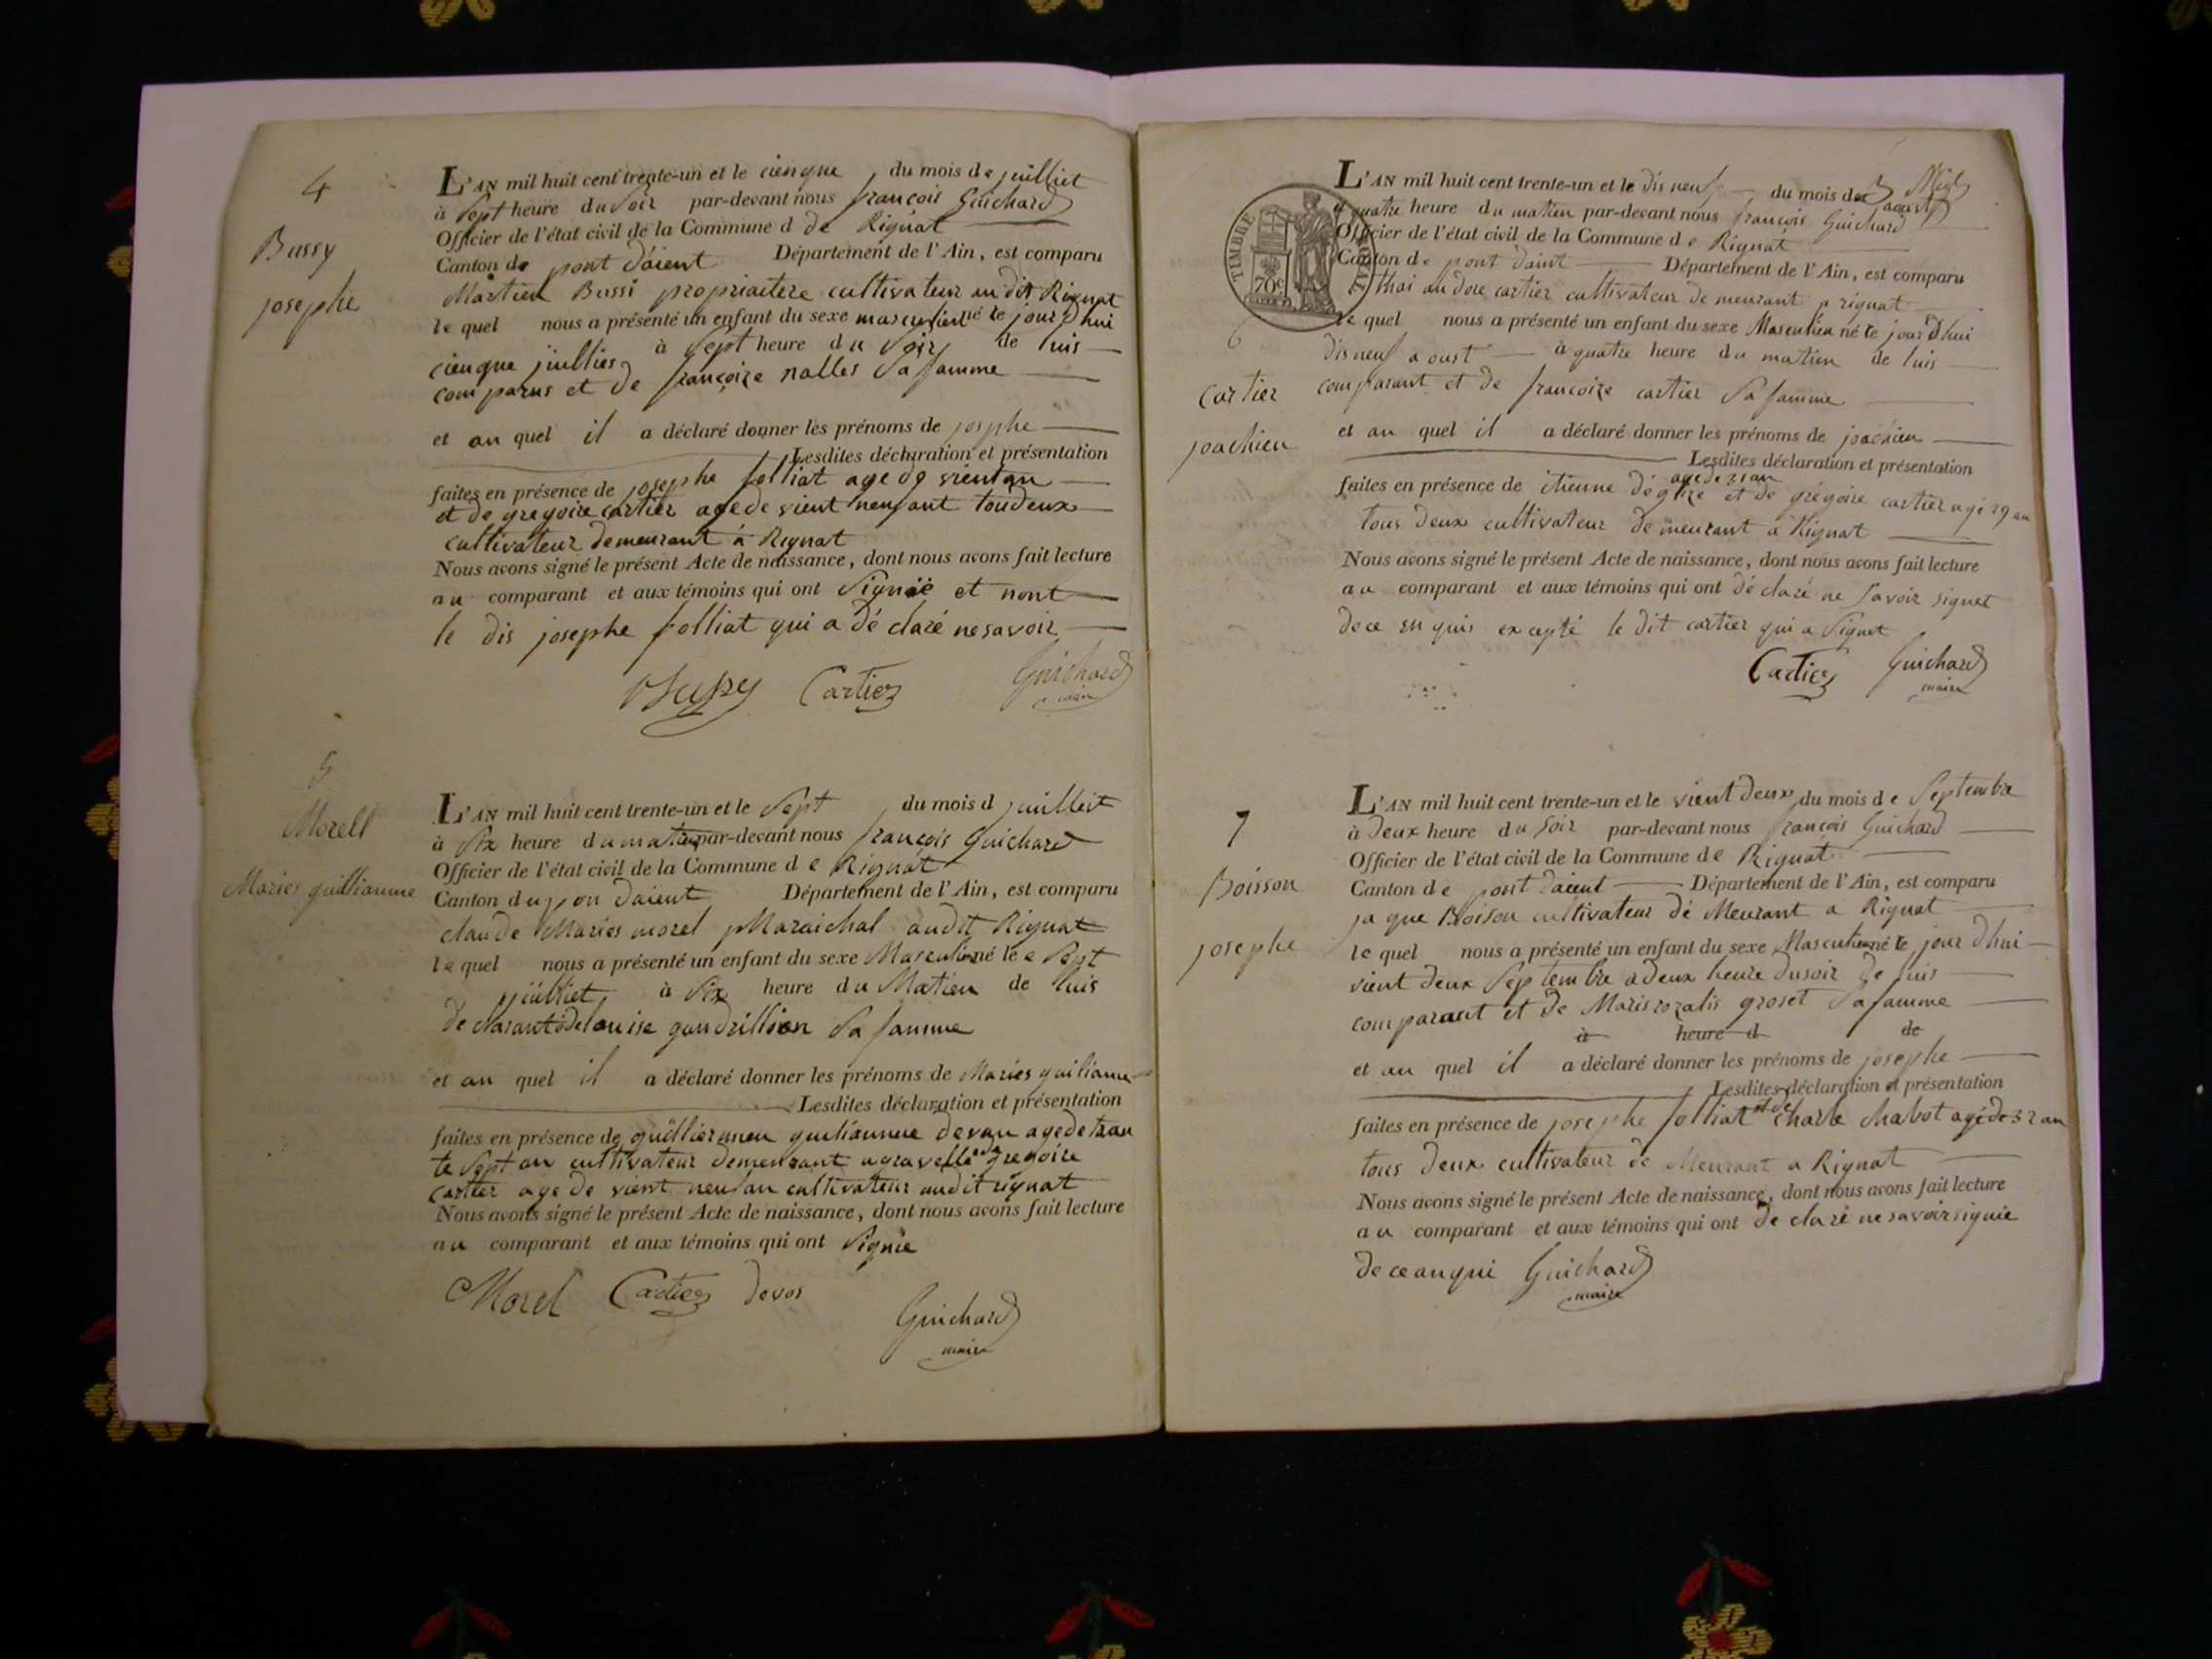 4
Bussy
josephe
L'AN mil huit cent trente-un et le cienque du mois de juilliet
à Sept heure du Soir par-devant nous françois Guichard
Officier de l'état civil de la Commune d de Rignat
Canton de pont d'aient Département de l'Ain, est comparu
Martien Bussi propriaitere cultivateur au dit Rignat
le quel nous a présenté un enfant du sexe masculient né le jourd'hui
cienque juillies à Sept heure du Soir de luis
comparus et de françoise nalles Sa famme
et au quel il a déclaré donner les prénoms de josphe
Lesdites déclaration et présentation
faites en présence de josephe folliat age de vientan
et de gregoire cartier age de vient neufant toudeux
cultivateur demeurant á Rignat
Nous avons signé le présent Acte de naissance, dont nous avons fait lecture
au comparant et aux témoins qui ont Signié et nont
le dis josephe folliat qui a dé claré nesavoir
Bussy Cartier Guichard
maire
5
Morell
Maries guillianme
L'AN mil huit cent trente-un et le Sept du mois d juilliet
à Six heure du matien par-devant nous françois Guichard
Officier de l'état civil de la Commune d e Rignat
Canton du pon daient Département de l'Ain, est comparu
claude Maries morel Maraichal audit Rignat
le quel nous a présenté un enfant du sexe Masculien né le e Sept
juilliet à Six heure du Matien de luis
declarant et de louise gandrillion Sa famme
et au quel il a déclaré donner les prénoms de Maries guilianme
Lesdites déclaration et présentation
faites en présence de guilianme devau agedetran
te Sept an cultivateur demeurant a gravelle et de gregoire
cartier age de vient neufan cultivateur audit rignat
Nous avons signé le présent Acte de naissance, dont nous avons fait lecture
au comparant et aux témoins qui ont Signie
Morel Cartier devos
Guichard
maire
TIMBRE ROYAL
70c
L'AN mil huit cent trente-un et le dis neuf du mois de aoust
a quatre heure du matien par-devant nous françois Guichard
Officier de l'état civil de la Commune d e Rignat
Canton de pont daint Département de l'Ain, est comparu
thai au dore cartier cultivateur de meurant a rignat
le quel nous a présenté un enfant du sexe Masculien né le jourd'hui
6
cartier
joachien
dis neuf aoust à quatre heure du matien de luis
comparant et de francoise cartier Sa famme
et au quel il a déclaré donner les prénoms de joachien
Lesdites déclaration et présentation
agede 31 an
faites en présence de itienne déglize et de grégoire cartier agé 29 an
tous deux cultivateur demeurant a Rignat
Nous avons signé le présent Acte de naissance, dont nous avons fait lecture
au comparant et aux témoins qui ont dé claré ne Savoir signet
dece en quis excepté le dit cartier qui a Signet
Cartier Guichard
maire
7
Boisson
josephe
L'AN mil huit cent trente-un et le vient deux du mois de Septembre
à deux heure du Soir par-devant nous françois Guichard
Officier de l'état civil de la Commune de Rignat
Canton de pont daient Département de l'Ain, est comparu
ja que Boison cultivateur dé Meurant a Rignat
le quel nous a présenté un enfant du sexe Masculien né le jour d'hui
vient deux Septembre a deux heure du soir de luis
comparant et de Maris rozalis groset Sa famme
à heure d de
et au quel il a déclaré donner les prénoms de josephe
Lesdites déclaration et présentation
faites en présence de josephe folliat et de charle Chabot agé de 32 an
tous deux cultivateur de Meurant a Rignat
Nous avons signé le présent Acte de naissance, dont nous avons fait lecture
au comparant et aux témoins qui ont de claré ne savoir signie
de ce anqui Guichard
maire